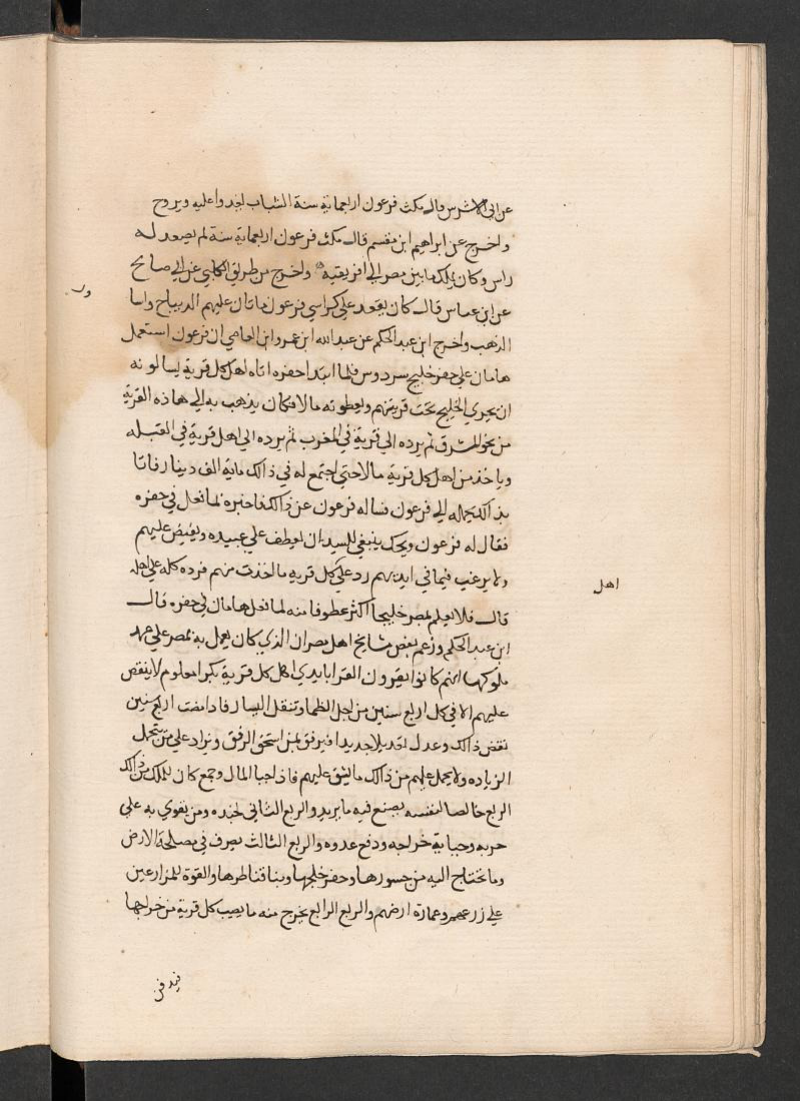 عن ابي الاشرس قال مكث فرعون اربعماية سنة الشباب يغدوا عليه ويروح
واخرج عن ابراهيم ابن مقسم قال مكث فرعون اربعماية سنة لم يصدع له
راس وكان يملك ما بين مصر الي افريقية واخرج من طريق الكلبي عن ابي صالح
عن ابن عباس قال كان يقعد علي كراسي فرعون مايتان عليهم الديباج واسا
الذهب واخرج ابن عبد الحكم عن عبد الله ابن عمرو ابن العاصي ان فرعون استعمل
هامان علي حفر خليج سردوس فلما ابتدا حفره اتاه اهل كل قرية يسالونه
ان يجري الخليج تحت قريتهم ويعطونه مالا فكان يذهب به الي هاذه القرية
من نحو المشرق ثم يرده الي قرية في المغرب ثم يرده الي اهل قرية في القبله
وياخذ من اهل كل قرية مالا حتي اجتمع له في ذالك ماية الف دينار فاتا
بذالك يحمله الي فرعون فساله فرعون عن ذالك فاخبره بما فعل في حفره
فقال له فرعون ويحك ينبغي للسيد ان يعطف علي عبيده ويفيض عليهم
ولا يرغب فيما في ايديهم رد علي كل قرية ما اخذت منهم فرده كله علي اهله
قال فلا يعلم بمصر خليجا اكثر عطوفا منه لما فعل هامان في حفره قال
ابن عبد الحكم وزعم بعض مشايخ اهل مصر ان الذي كان يعمل به بمصر علي عهد
ملوكها انهم كانوا يقرون القرا بايدي اهل كل قرية بكرا معلوم لا ينقص
عليهم الا في كل اربع سنين من اجل الظما وتنقل اليسار فاذا مضت اربع سنين
نقض ذالك وعدل تعديلا جديدا فيرفق بمن استحق الرفق ويزاد علي من يحتمل
الزياده ولا يحمل عليهم من ذالك ما يشق عليهم فاذا جبا المال وجمع كان للملك من ذالك
الربع خالصا لنفسه يصنع فيه ما يريد والربع الثاني لجنده ومن يقوي به علي
حربه وجباية خراجه ودفع عدوه والربع الثالث يصرف في مصلحة الارض
وما يحتاج اليه من جسورها وحفر خلجها وبنا قناطرها والقوة للمزارعين
علي زرعهم وعمارة ارضهم والربع الرابع يخرج منه ما يصيب كل قرية من خراجها
فيدفن
اهل
ور